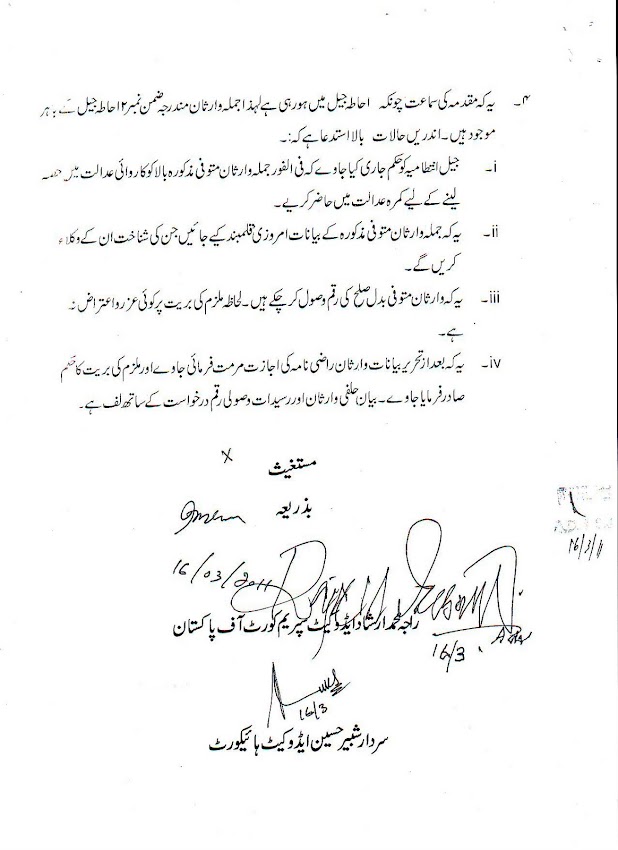 ۴۔ یہ کہ مقدمہ کی سماعت چونکہ احاطہ جیل میں ہو رہی ہے لہذا جملہ وارثان مندرجہ ضمن نمبر ۲ احاطہ جیل کے باہر
موجود ہیں۔ اندریں حالات بالا استدعا ہے کہ:۔
i۔ جیل انتظامیہ کو حکم جاری کیا جاوے کہ فی الفور جملہ وارثان متوفی مذکورہ بالا کو کاروائی عدالت میں حصہ
لینے کے لیے کمرہ عدالت میں حاضر کریے۔
ii۔ یہ کہ جملہ وارثان متوفی مذکورہ کے بیانات امروزی قلمبند کیے جائیں جن کی شناخت ان کے وکلاء
کریں گے۔
iii۔ یہ کہ وارثان متوفی بدل صلح کی رقم وصول کر چکے ہیں۔ لحاظہ ملزم کی بریت پر کوئی عزر و اعتراض نہ
ہے۔
iv۔ یہ کہ بعد از تحریر بیانات وارثان راضی نامہ کی اجازت مرمت فرمائی جاوے اور ملزم کی بریت کا حکم
صادر فرمایا جاوے۔ بیان حلفی وارثان اور رسیدات وصولی رقم درخواست کے ساتھ لف ہے۔
x
مستغیث
بذریعہ
16/3/11
16/03/2011
راجہ محمد ارشاد ایڈووکیٹ سپریم کورٹ آف پاکستان
16/3
16/3
سردار شبیر حسین ایڈوکیٹ ہائیکورٹ